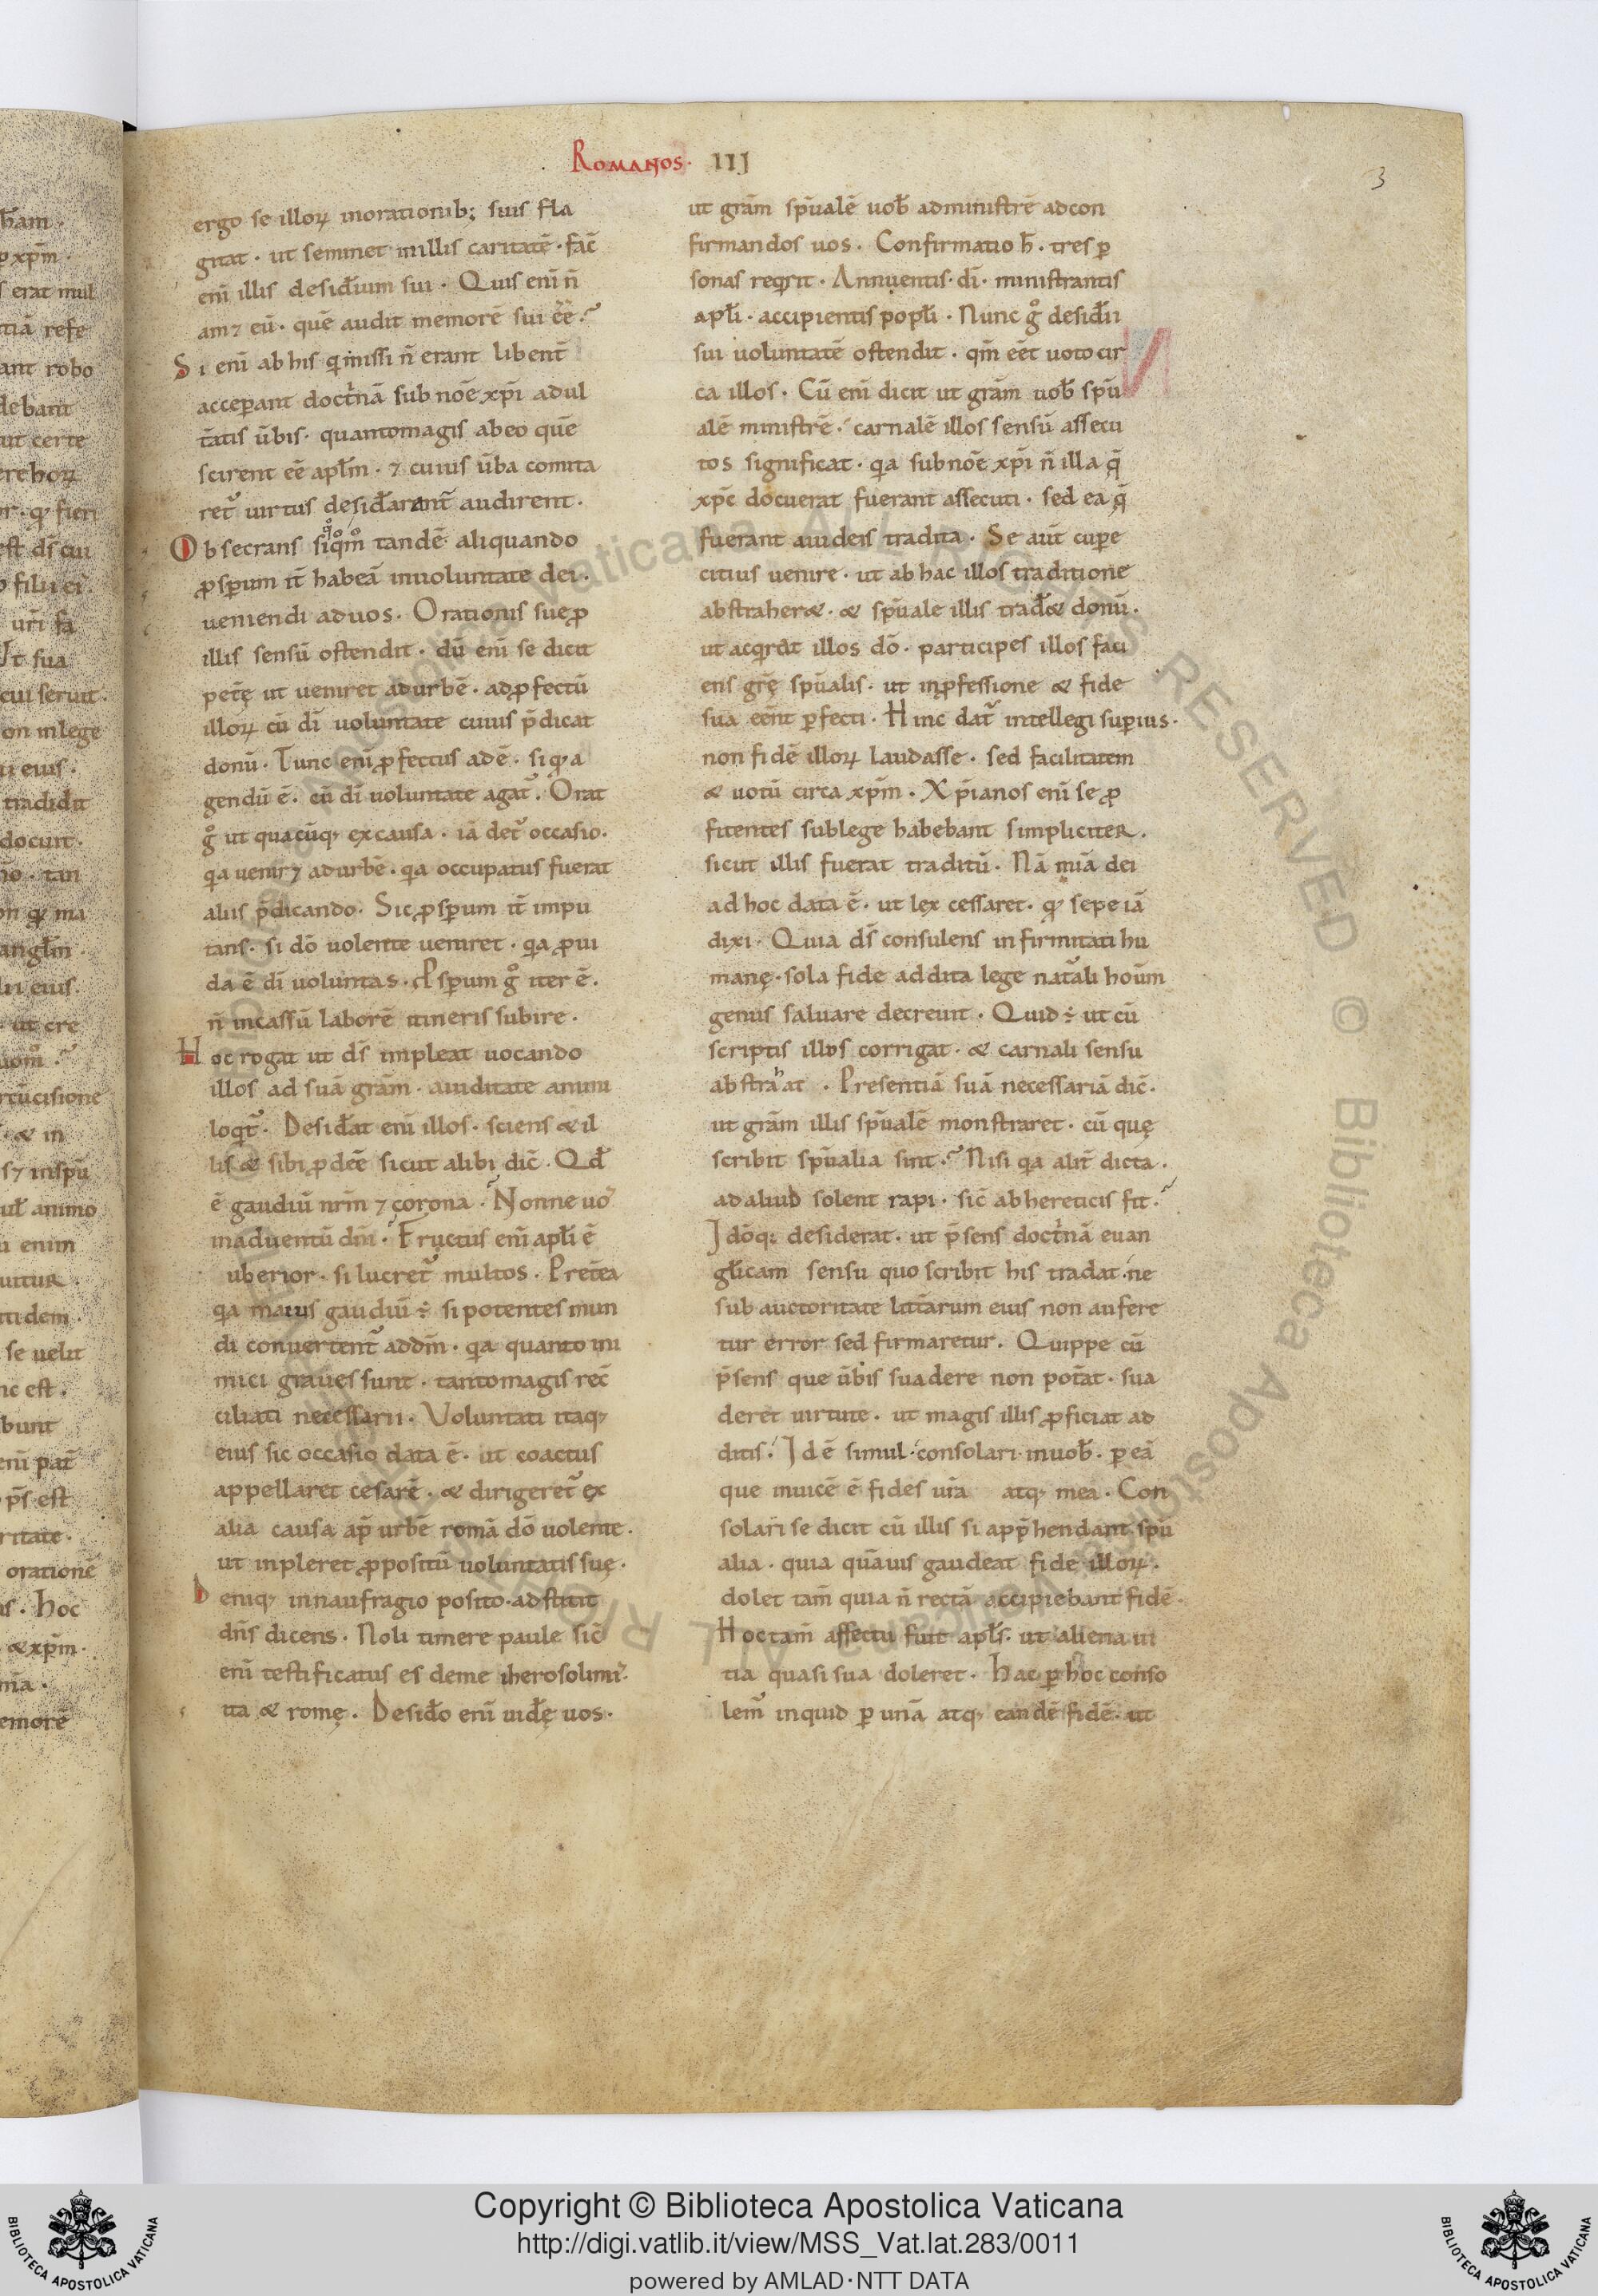 Romanos. III
3
ergo se illoꝝ in orationib; suis fla
gitat · ut seminet in illis caritatē · fac̄
eni illis desideriū sui · Quis eni n̄
am⁊ eū · quē audit memorē sui ēē ·
Si eni ab his q̇ missi n̄ erant libent̄
acceperant docṫnā sub nōe xp̄i adul
t̄atis ūbis · quantomagis ab eo quē
scirent eē apl̄m · ⁊ cuius ūba comita
ret᷑ uirtus desiđarent audirent ·
Obsecrans siq̊m̊ tandē aliquando
ꝓsꝑum it̄ habeā in uoluntate dei ·
ueniendi ad uos · Orationis suę ꝓ
illis sensū ostendit · dū eni se dicit
pet̄ę ut ueniret ad urbē · ad ꝓfectū
illoꝝ cū di uoluntate cuius p̄dicat
donū · Tunc eni ꝓfectus adē · si qđ a
gendū ē · cū di uoluntate agat᷑ · Orat
g̊ ut quacūq; ex causa · iā det᷑ occasio ·
qa uenir⁊ ad urbē · qa occupatus fuerat
aliis p̄dicando · Sic ꝓsꝑum it̄ impu
tans · si dō uolente ueniret · qa ꝓui
da ē di uoluntas · Ꝓsꝑum g̊ iter ē ·
n̄ incassū laborē itineris subire ·
Hoc rogat ut ds̄ impleat uocando
illos ad suā grām · auiditate animi
loqt᷑ · Desiđat eni illos · sciens & il
lis & sibi ꝓdeē sicut alibi dic̄ · Qđ
ē gaudiū nrm̄ ⁊ corona · Nonne uos
in aduentū dn̄i · Fructus eni apl̄i ē
uberior · si lucret᷑ multos · Pret̄ea
qa maius gaudiū ÷ si potentes mun
di conuertent᷑ ad dm̄ · qa quanto ini
mici graues sunt · tantomagis rec̄
ciliati necessarii · Voluntati itaq;
eius sic occasio data ē · ut coactus
appellaret cesarē · & dirigeret᷑ ex
alia causa ap̄ urbē romā dō uolente ·
ut inpleret ꝓpositū uoluntatis suę ·
Deniq; in naufragio posito · adstitit
dn̄s dicens · Noli timere paule sic̄
eni testificatus es de me iherosolimis ·
ita & romę · Desiđo eni uiđę uos ·
ut grām sp̄ualē uob̄ administrē ad con
firmandos uos · Confirmatio h̄ · tres ꝑ
sonas reqrit · Annuentis · di · ministrantis
apl̄i · accipientis popl̄i · Nunc g̊ desiđii
sui uoluntatē ostendit · qm̄ eēt uoto cir
ca illos · Cū eni dicit ut grām uob̄ sp̄u
alē ministrē · carnalē illos sensū assecu
tos significat · qa sub nōe xp̄i n̄ illa q̄
xp̄c docuerat fuerant assecuti · sed ea q̄
fuerant a iudeis tradita · Se aut̄ cuꝑe
citius uenire · ut ab hac illos traditione
abstraher& · & sp̄uale illis trađ& donū ·
ut acqrat illos dō · participes illos faci
ens grę̄ sp̄ualis · ut in ꝓfessione & fide
sua eēnt ꝑfecti · Hinc dat᷑ intellegi suꝑius ·
non fidē illoꝝ laudasse · sed facilitatem
& uotū circa xp̄m · Xp̄ianos eni se ꝓ
fitentes sub lege habebant simpliciter ·
sicut illis fuerat traditū · Nā mi̅a dei
ad hoc data ē · ut lex cessaret · qđ sepe iā
dixi · Quia ds̄ consulens infirmitati hu
manę · sola fide addita lege nat᷑ali hoūm
genus saluare decreuit · Quid ÷ ut cū
scriptis illos corrigat · & carnali sensu
abstrahat · Presentiā suā necessariā dic̄ ·
ut grām illis sp̄ualē monstraret · cū quę
scribit sp̄ualia sint · Nisi qa alit̄ dicta ·
ad aliud solent rapi · sic̄ ab hereticis fit ·
Idōq; desiderat · ut p̄sens docṫnā euan
gl̄icam sensu quo scribit his tradat · ne
sub auctoritate litt̄arum eius non aufere
tur error sed firmaretur · Quippe cū
p̄sens que ūbis suadere non pot̄at · sua
deret uirtute · ut magis illis ꝓficiat ad
ditis · Id ē simul consolari in uob̄ · ꝑ eā
que inuicē ē fides ur̄a atq; mea · Con
solari se dicit cū illis si app̄hendant sp̄u
alia · quia quāuis gaudeat fide illoꝝ ·
dolet tam̄ quia n̄ rectā accipiebant fidē ·
Hoc tam̄ affectu fuit apl̄s · ut aliena ui
tia quasi sua doleret · Hac ꝑ hoc conso
lem᷑ inquid ꝑ unā atq; eandē fidē · ut
Copyright © Biblioteca Apostolica Vaticana
http://digi.vatlib.it/view/MSS_Vat.lat.283/0011
powered by AMLAD·NTT DATA
BIBLIOTECA APOSTOLICA VATICANA
BIBLIOTECA APOSTOLICA VATICANA